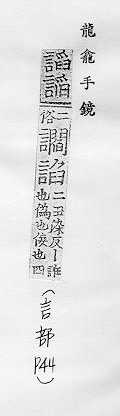 龍龕手鏡
謟謟二俗讇諂二丑染反丨誰也偽也佞也四
(言部 P44)